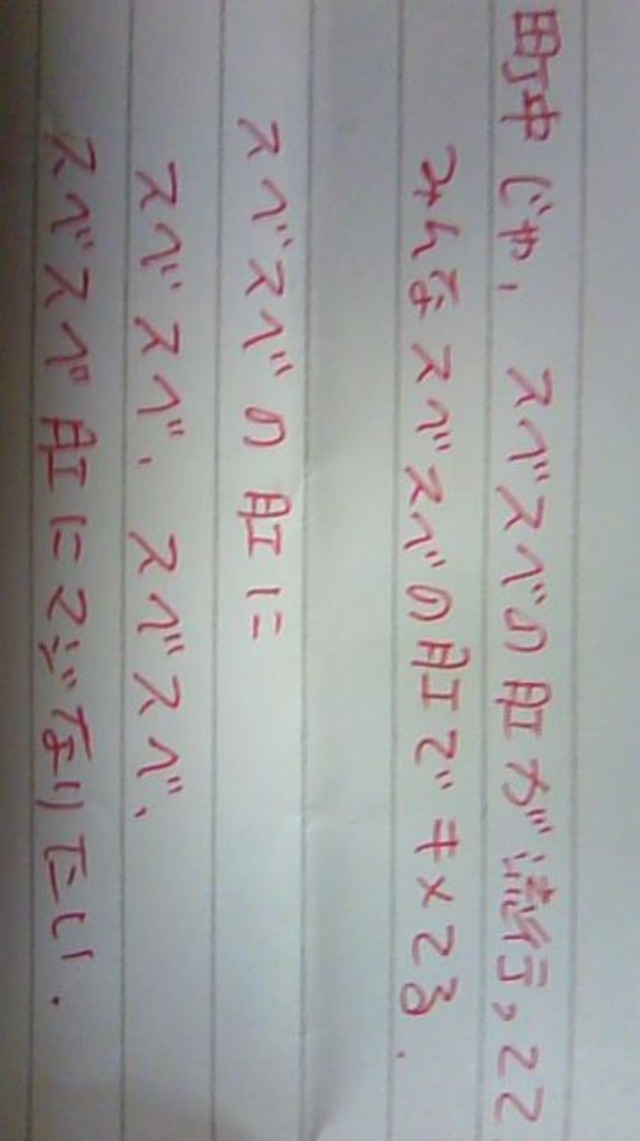 町中じゃ、スベスベの肛が流行ってて
みんなスベスベの肛でキメてる.
スベスベの肛に
スベスベ、スベスベ、
スベスベ肛にマジなりたい.